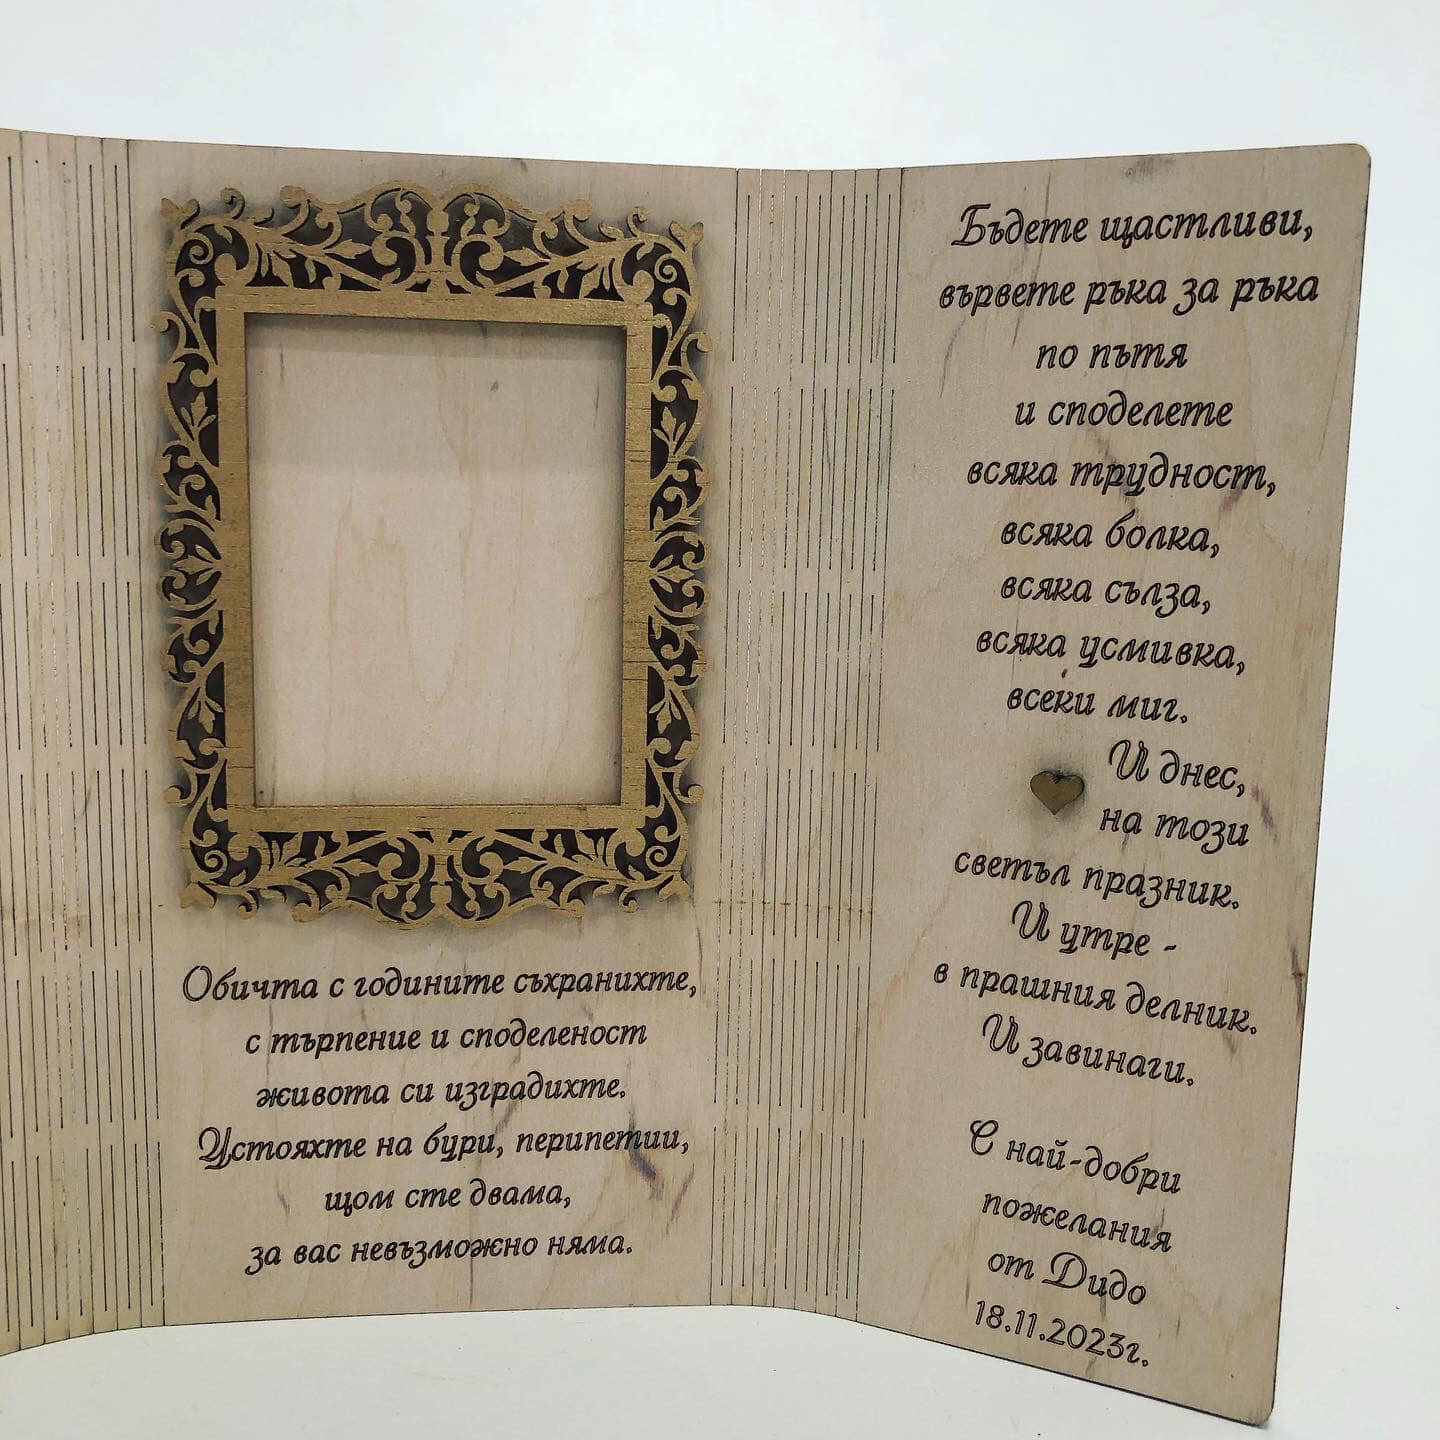 Обичта с годините съхранихте,
с търпение и споделеност
живота си изградихте.
Устояхте на бури, перипетии,
щом сте двама,
за вас невъзможно няма.
Бъдете щастливи,
вървете ръка за ръка
по пътя
и споделете
всяка трудност,
всяка болка,
всяка сълза,
всяка усмивка,
всеки миг.
И днес,
на този
светъл празник.
И утре -
в прашния делник.
И завинаги.
С най-добри
пожелания
от Дидо
18.11.2023г.